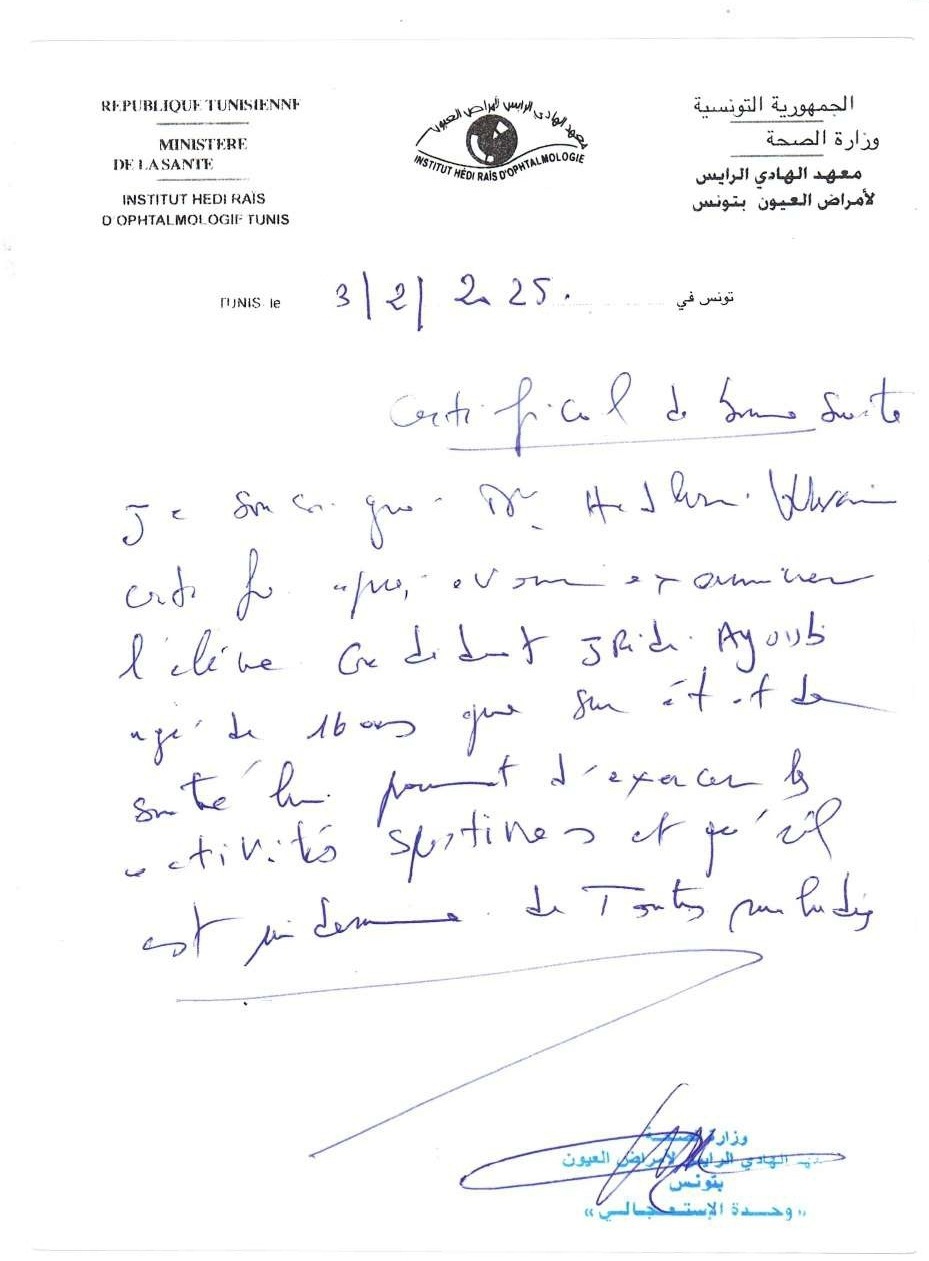 REPUBLIQUE TUNISIENNE
MINISTERE
DE LA SANTE
INSTITUT HEDI RAÏS
D'OPHTALMOLOGIE TUNIS
معهد الهادي الرايس لأمراض العيون
INSTITUT HÉDI RAÏS D'OPHTALMOLOGIE
الجمهورية التونسية
وزارة الصحة
معهد الهادي الرايس
لأمراض العيون بتونس
TUNIS le 3/2/2025. تونس في
Certificat de bonne santé
Je soussigné Dr
certifie après avoir examiner
l'élève Candidat JRidi Ayoub
agé de 16 ans que son état de
santé lui permet d'exercer les
activités sportives et qu'il
est indemne de Toutes maladies
وزارة الصحة
معهد الهادي الرايس لأمراض العيون
بتونس
«وحدة الإستعجالي»